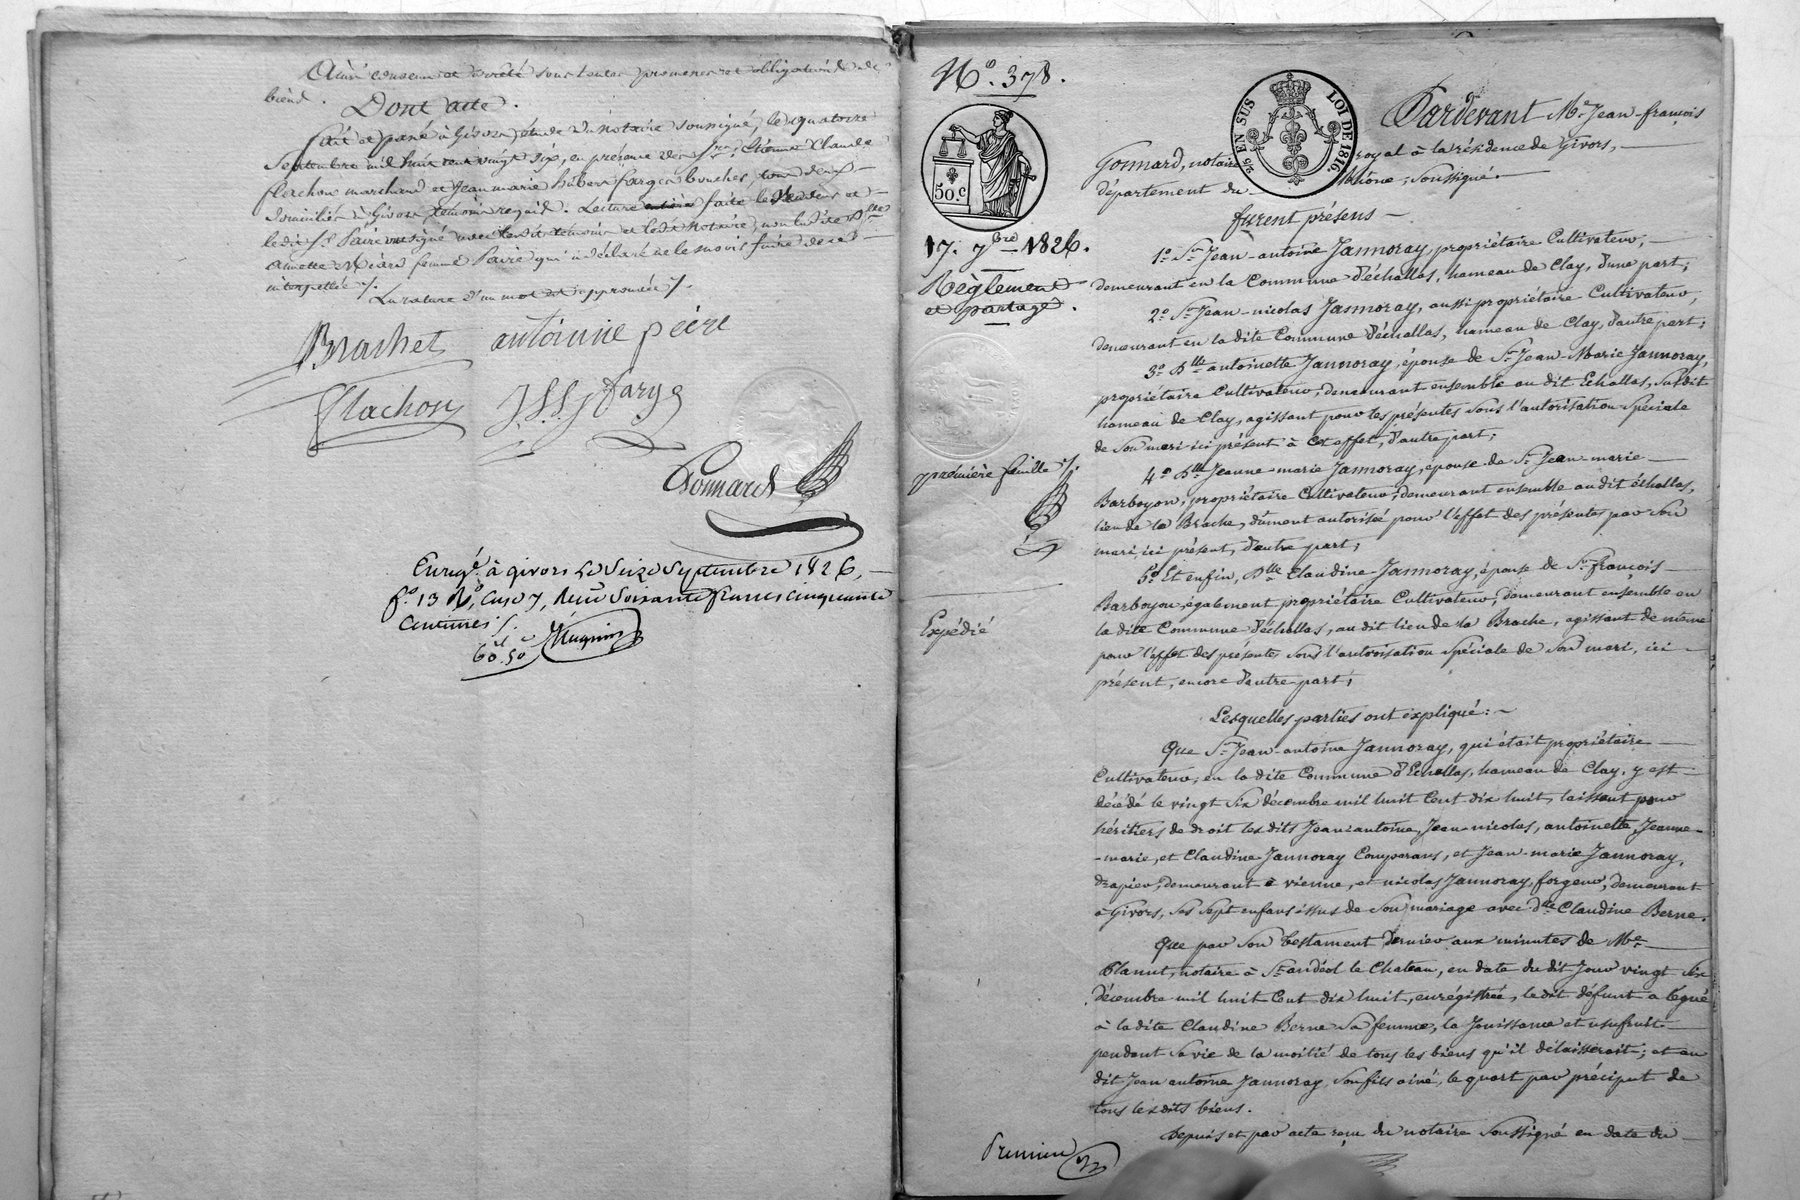 Ainsi convenu et arrêté sous toutes promesses et obligations de
biens. Dont acte.
fait et passé à Givors étude du notaire soussigné, le quatorze
Septembre mil huit cent vingt six, en présence des Srs. Etienne Claude
flachon marchand et Jean marie hubert farge boucher, tous deux
domiciliés à Givors, témoins requis. Lecture faite le Vendeur et
le dit Sr Peire ont signé avec les dits témoins et le dit Notaire, non la dite Dlle
annette femme Peire qui a déclaré ne le savoir faire de ce
interpellée ./.
La rature d'un mot est approuvée ./.
Brachet antoinne péere
flachon farge
Gonnard
Enregé. à givors Le Seize Septembre 1826,
fo. 13 Vo, Case 7, Reçu Soixante francs cinquante
Centimes ./.
60 50
No. 378.
50 c
17. 7bre 1826.
Règlement
et partage.
première feuille ./.
Expédié
25 EN SUS LOI DE 1816.
Pardevant Me Jean-françois
Gonnard, notaire royal à la résidence de Givors,
département du Rhône, Soussigné.
furent présens
1o. Sr. Jean-antoine Jannoray, propriétaire Cultivateur,
demeurant en la Commune d'échallas, hameau de Clay, d'une part;
2o. Sr. Jean-nicolas Jannoray, aussi propriétaire Cultivateur,
demeurant en la dite Commune d'échallas, hameau de Clay, d'autre part;
3o. Dlle antoinette Jannoray, épouse de Sr. Jean-Marie Jannoray,
propriétaire Cultivateur, demeurant ensemble au dit Echallas, Susdit
hameau de Clay, agissant pour les présentes Sous l'autorisation Spéciale
de Son mari ici présent à cet effet, d'autre part;
4o. Dlle Jeanne-marie Jannoray, épouse de Sr. Jean-marie
Barboyon, propriétaire Cultivateur, demeurant ensemble au dit échallas,
lieu de la Brache, dûment autorisée pour l'effet des présentes par Son
mari, ici présent, d'autre part;
5o. Et enfin, Dlle Claudine Jannoray, épouse de Sr. françois
Barboyon, également propriétaire Cultivateur, demeurant ensemble en
la dite Commune d'échallas, au dit lieu de la Brache, agissant de même
pour l'effet des présentes Sous l'autorisation Spéciale de Son mari, ici
présent, encore d'autre part;
Lesquelles parties ont expliqué:
Que Sr. Jean-antoine Jannoray, qui était propriétaire
Cultivateur, en la dite Commune d'Echallas, hameau de Clay, y est
décédé le vingt Six décembre mil huit Cent dix huit, laissant pour
héritiers de droit les dits Jean-antoine, Jean-nicolas, antoinette, Jeanne-
-marie, et Claudine Jannoray Comparans, et Jean-marie Jannoray,
drapier, demeurant à vienne, et nicolas Jannoray, forgeur, demeurant
à Givors, Ses Sept enfans issus de Son mariage avec dlle Claudine Berne.
Que par Son testament dernier aux minutes de Me
Planut, notaire à St. andéol le Chateau, en date du dit Jour vingt Six
décembre mil huit Cent dix huit, enrégistrée, le dit défunt a légué
à la dite Claudine Berne Sa femme, la Jouissance et usufruit
pendant Sa vie de la moitié de tous les biens qu'il délaisserait; et au
dit Jean antoine Jannoray Son fils ainé, le quart par préciput de
tous les dits biens.
Depuis et par acte reçu du notaire Soussigné en date du